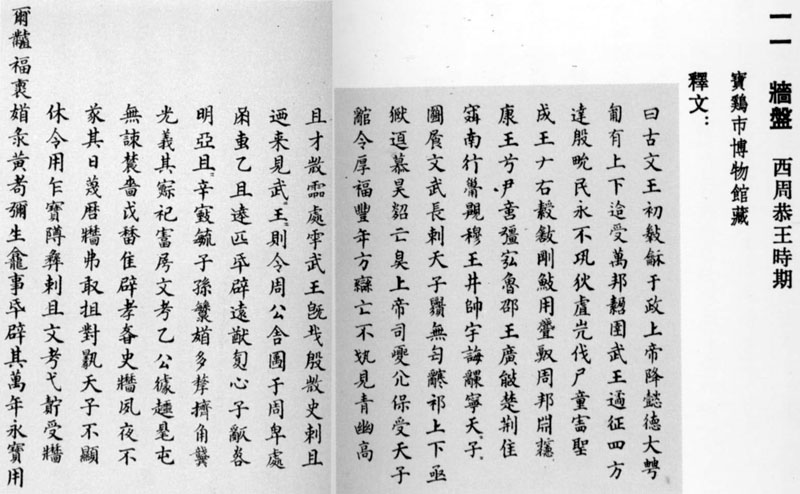 一一 牆盤 西周恭王時期
寶鷄市博物館藏
釋文：
曰古文王初龢于政上帝降懿德大甹
匍有上下迨受萬邦圉武王遹征四方
達殷畯民永不巩狄虘伐尸童憲聖
成王𠂇右剛用肇周邦
康王兮尹啻彊宖魯卲王廣楚荆隹
南行穆王井帥宇誨寧天子
文武長剌天子無匄祁上下亟
慕昊亡臭上帝司夒尢保受天子
綰令厚福豐年方亡不見青幽高
且才散霝處雩武王既殷散史剌且
迺来見武王=則令周公舍圖于周卑處
甬叀乙且逨匹氒辟遠猷匐心子
明亞且=辛毓子孫媘多孷角龏
光義其祀文考乙公屯
無諫嗇戉隹辟孝史牆夙夜不
㒸其日蔑曆牆弗敢抯對天子不顯
休令用乍寶彝剌且文考弋貯受牆
爾福褱媘彔黃耇彌生龕事氒辟其萬年永寶用